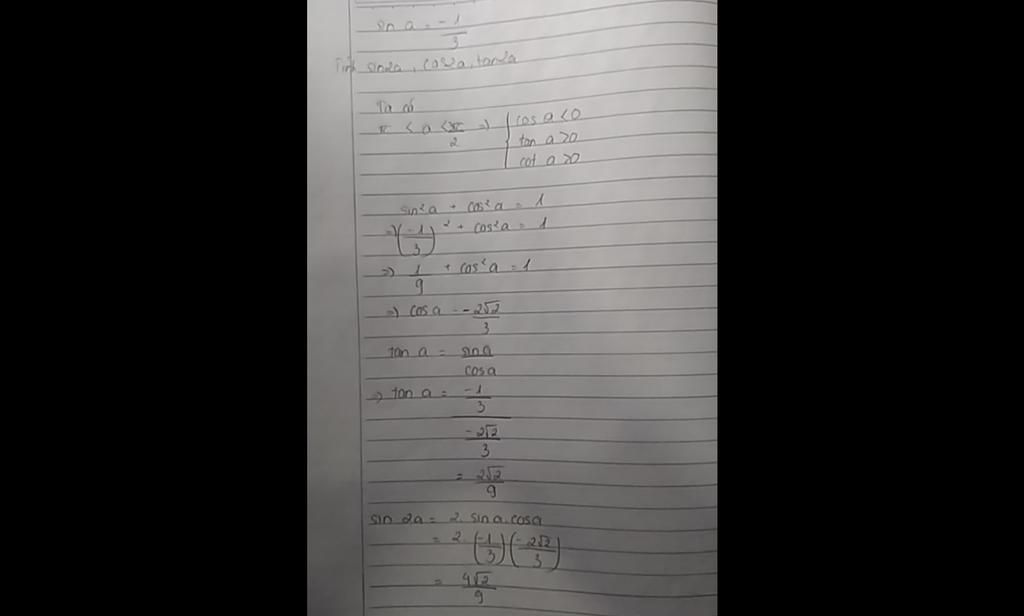 sin a = -1/3
Tính sin2a, cos2a, tan2a
Ta có
π < a < 3π/2 => { cos a < 0
tan a > 0
cot a > 0
sin²a + cos²a = 1
=> (-1/3)² + cos²a = 1
=> 1/9 + cos²a = 1
=> cos a = -2√2/3
tan a = sin a/cos a
=> tan a = (-1/3)/(-2√2/3)
= 2√2/9
sin 2a = 2. sin a. cos a
= 2. (-1/3) (-2√2/3)
= 4√2/9